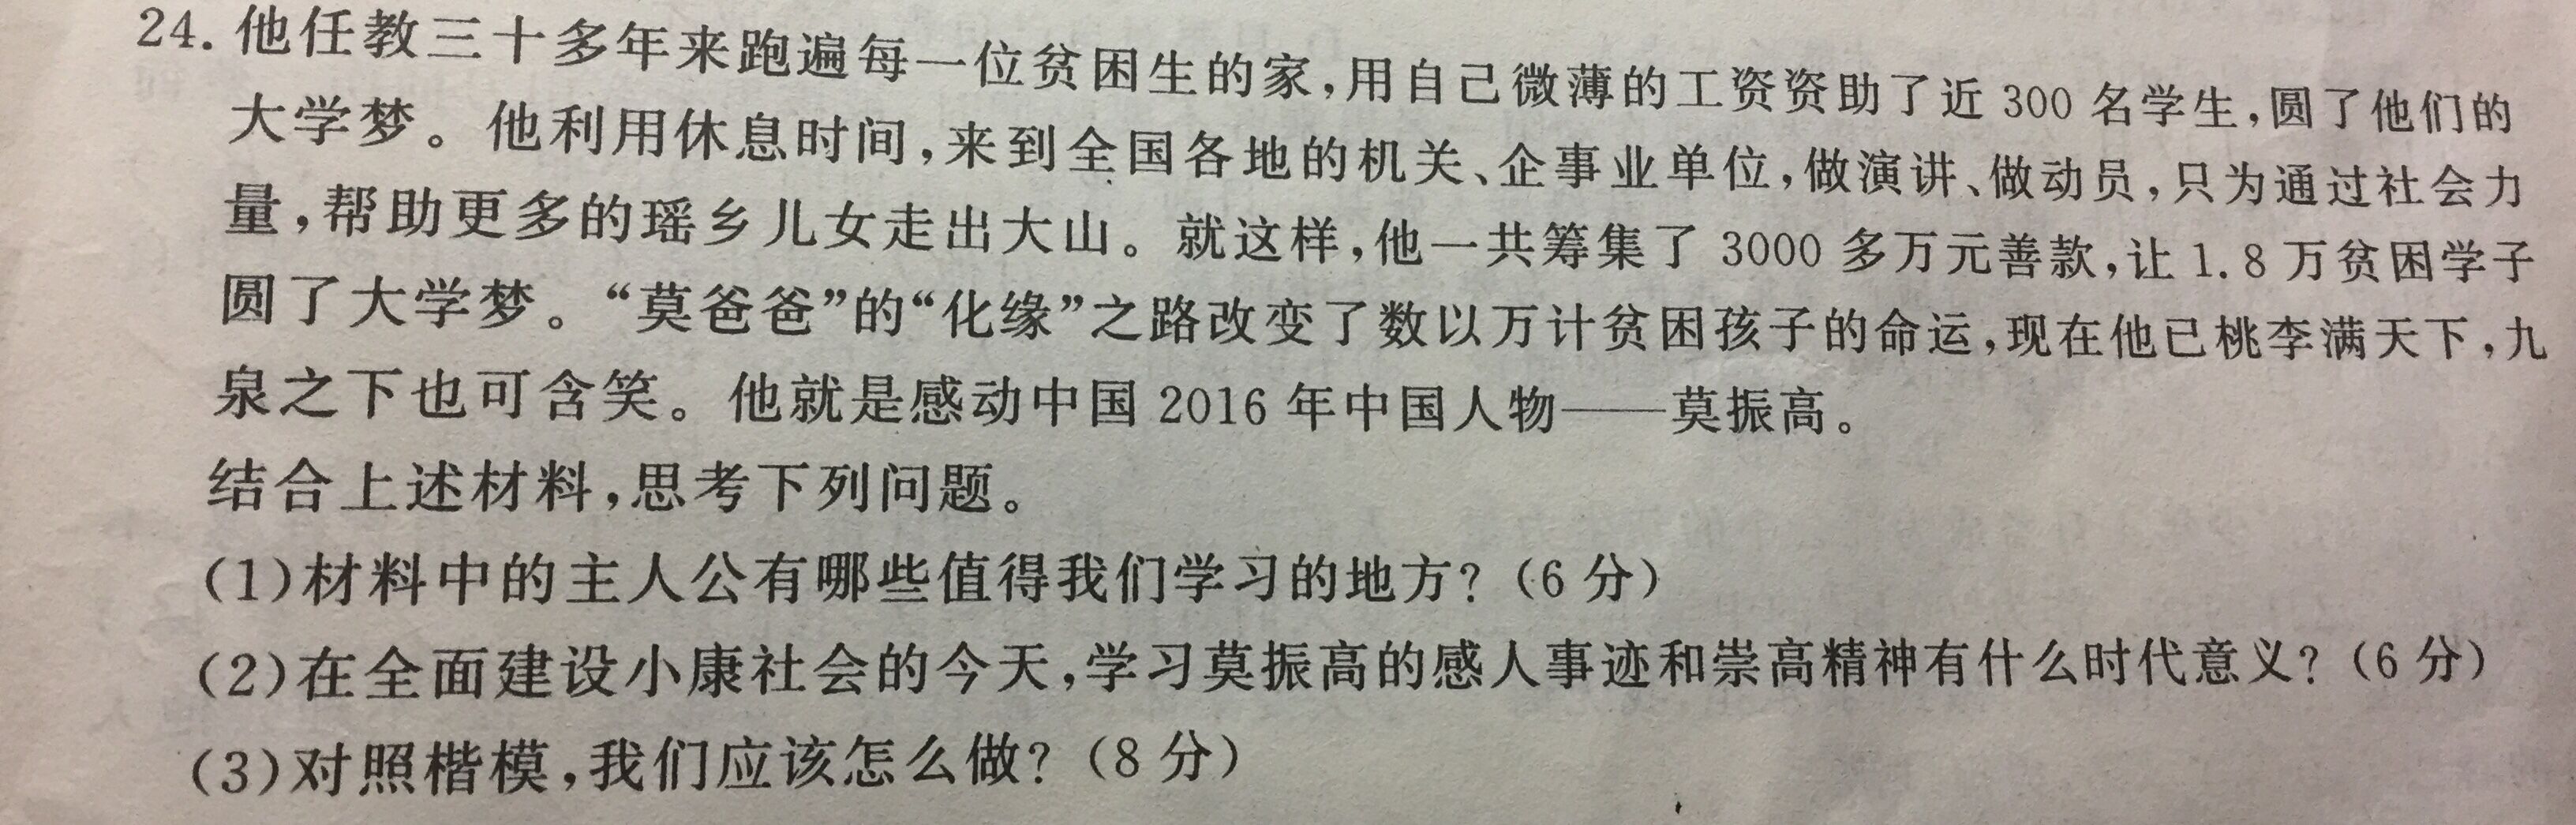 24. 他任教三十多年来跑遍每一位贫困生的家,用自己微薄的工资资助了近 300 名学生,圆了他们的
大学梦。他利用休息时间,来到全国各地的机关、企事业单位,做演讲、做动员,只为通过社会力
量,帮助更多的瑶乡儿女走出大山。就这样,他一共筹集了 3000 多万元善款,让 1.8 万贫困学子
圆了大学梦。“莫爸爸”的“化缘”之路改变了数以万计贫困孩子的命运,现在他已桃李满天下,九
泉之下也可含笑。他就是感动中国 2016 年中国人物——莫振高。
结合上述材料,思考下列问题。
(1)材料中的主人公有哪些值得我们学习的地方?(6 分)
(2)在全面建设小康社会的今天,学习莫振高的感人事迹和崇高精神有什么时代意义?(6 分)
(3)对照楷模,我们应该怎么做?(8 分)